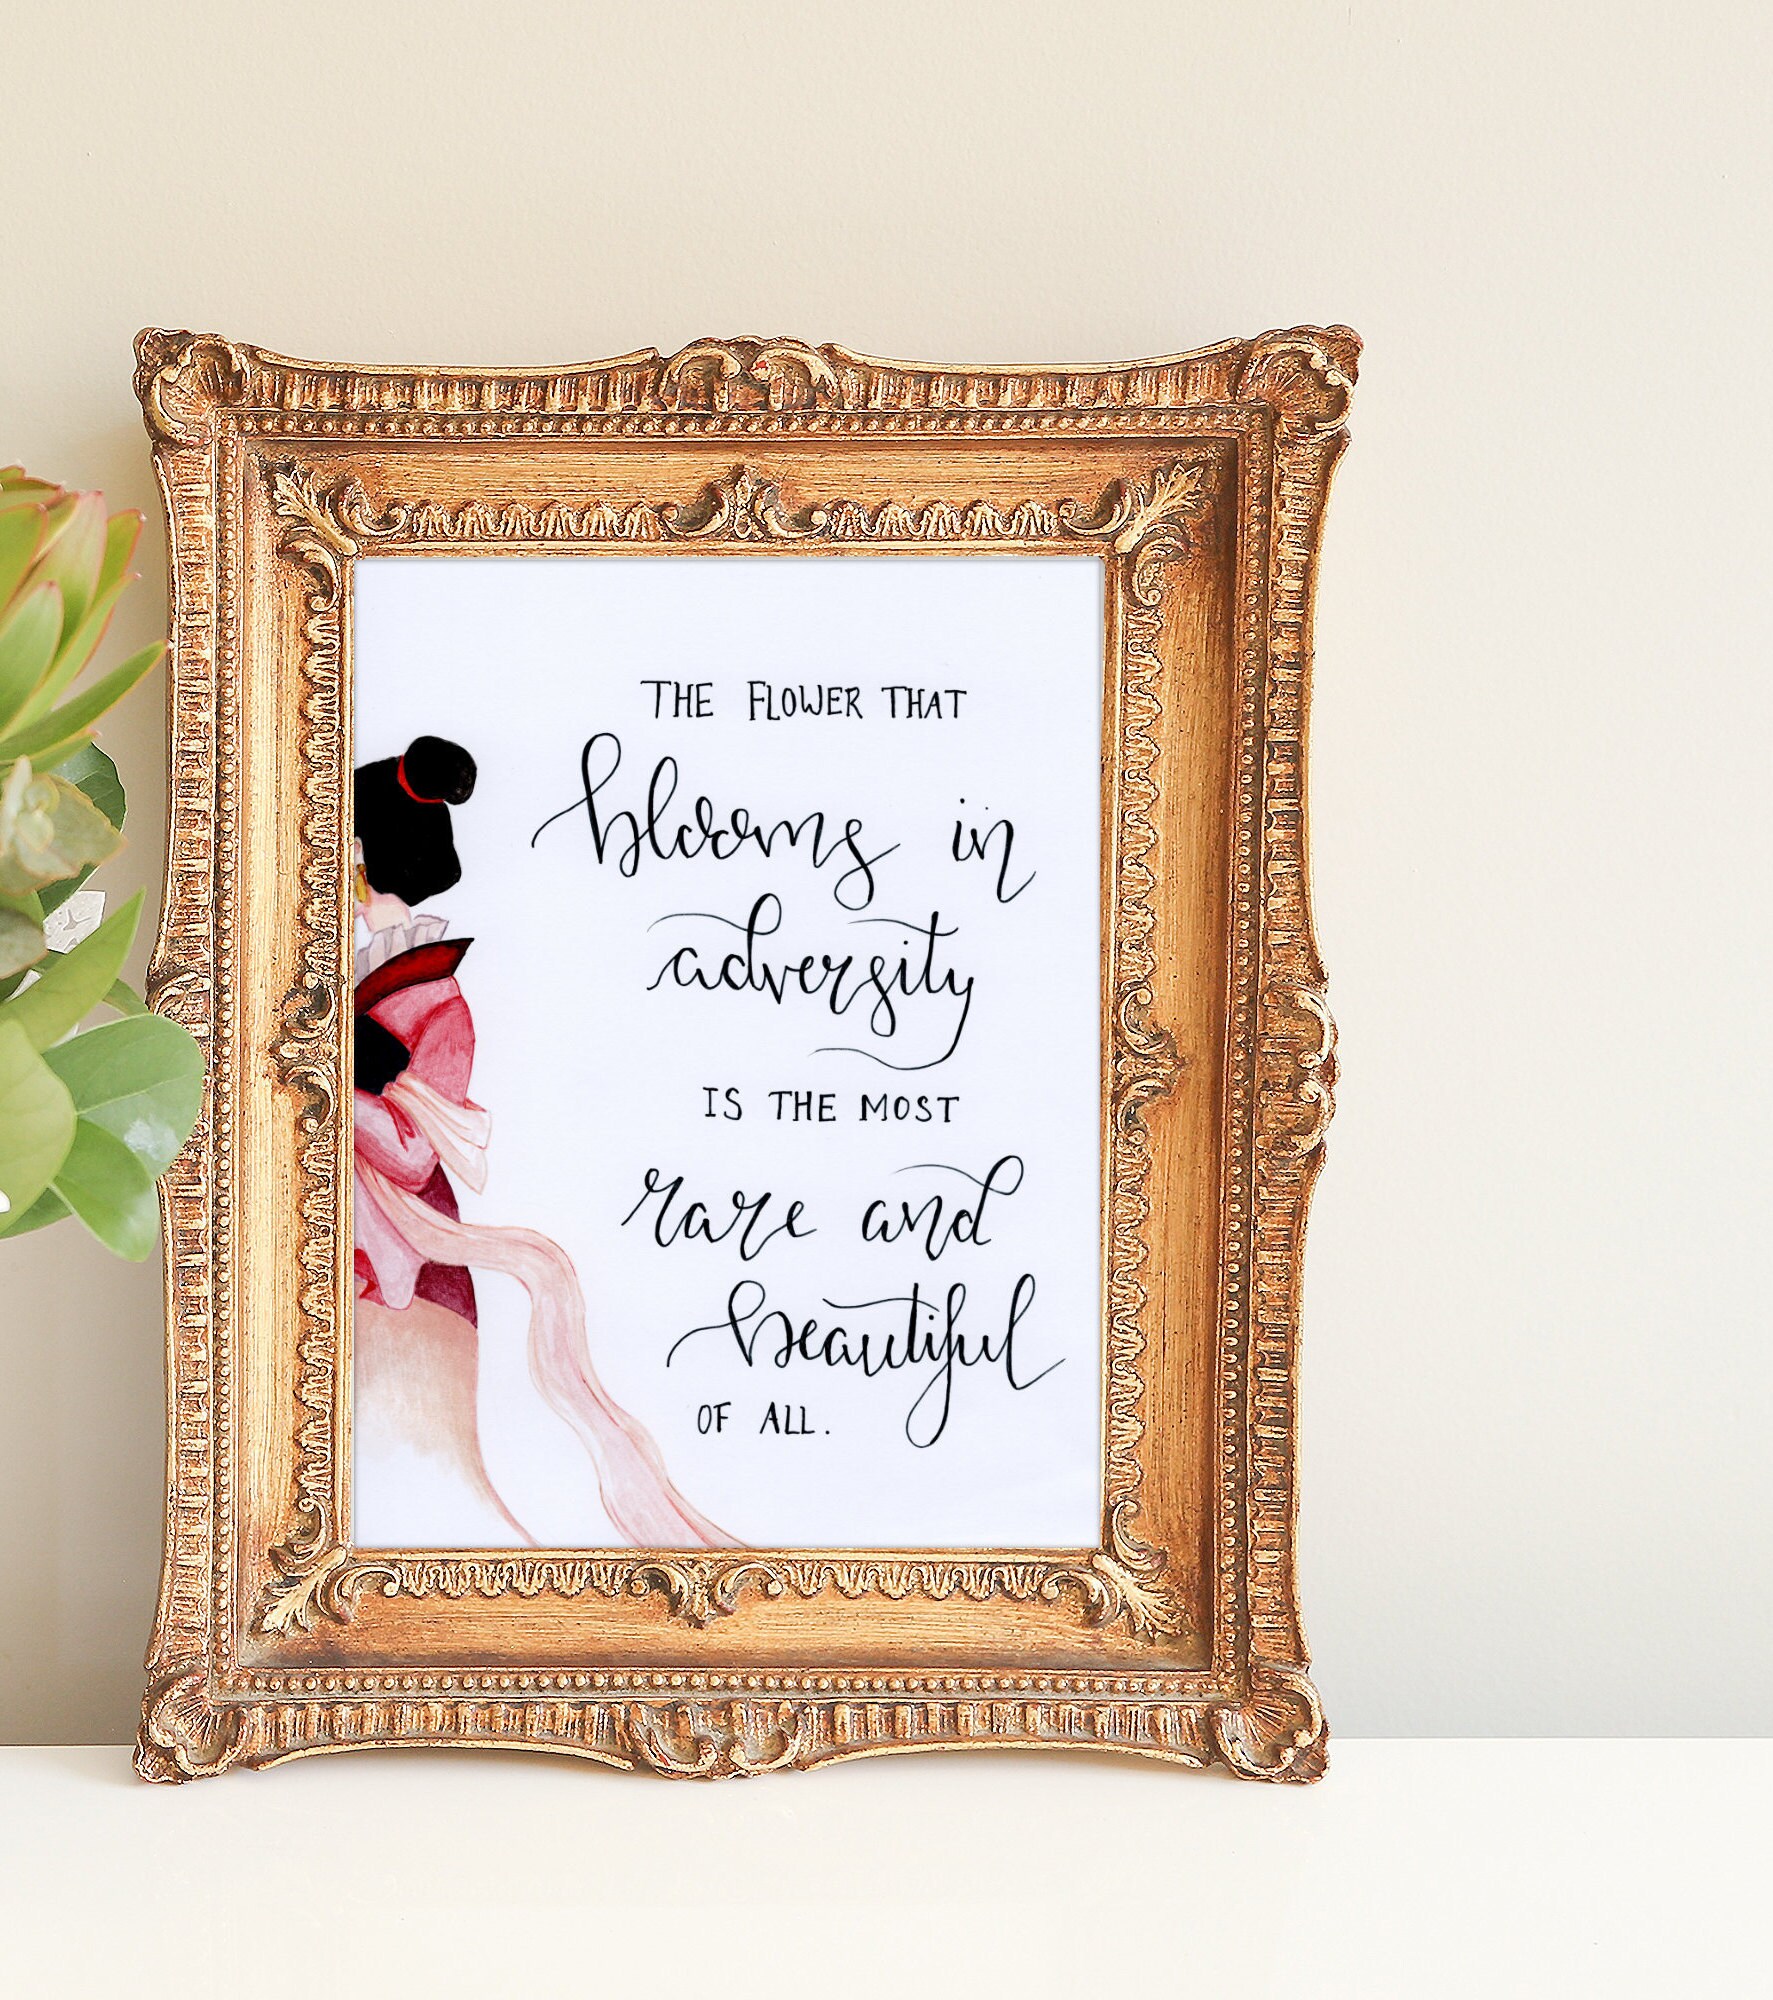 THE FLOWER THAT
blooms in
adversity
IS THE MOST
rare and
beautiful
OF ALL.